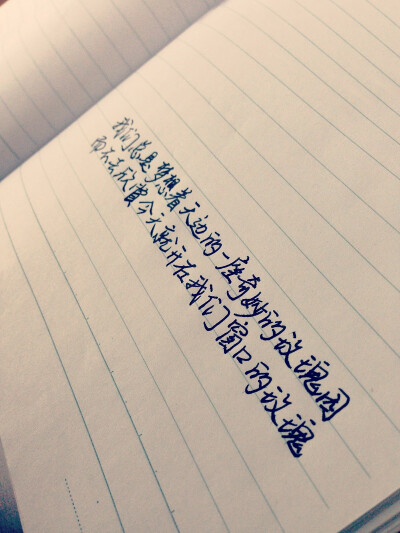 我们总是梦想着天边的一座奇妙的玫瑰园
而不去欣赏今天就开在我们窗口的玫瑰